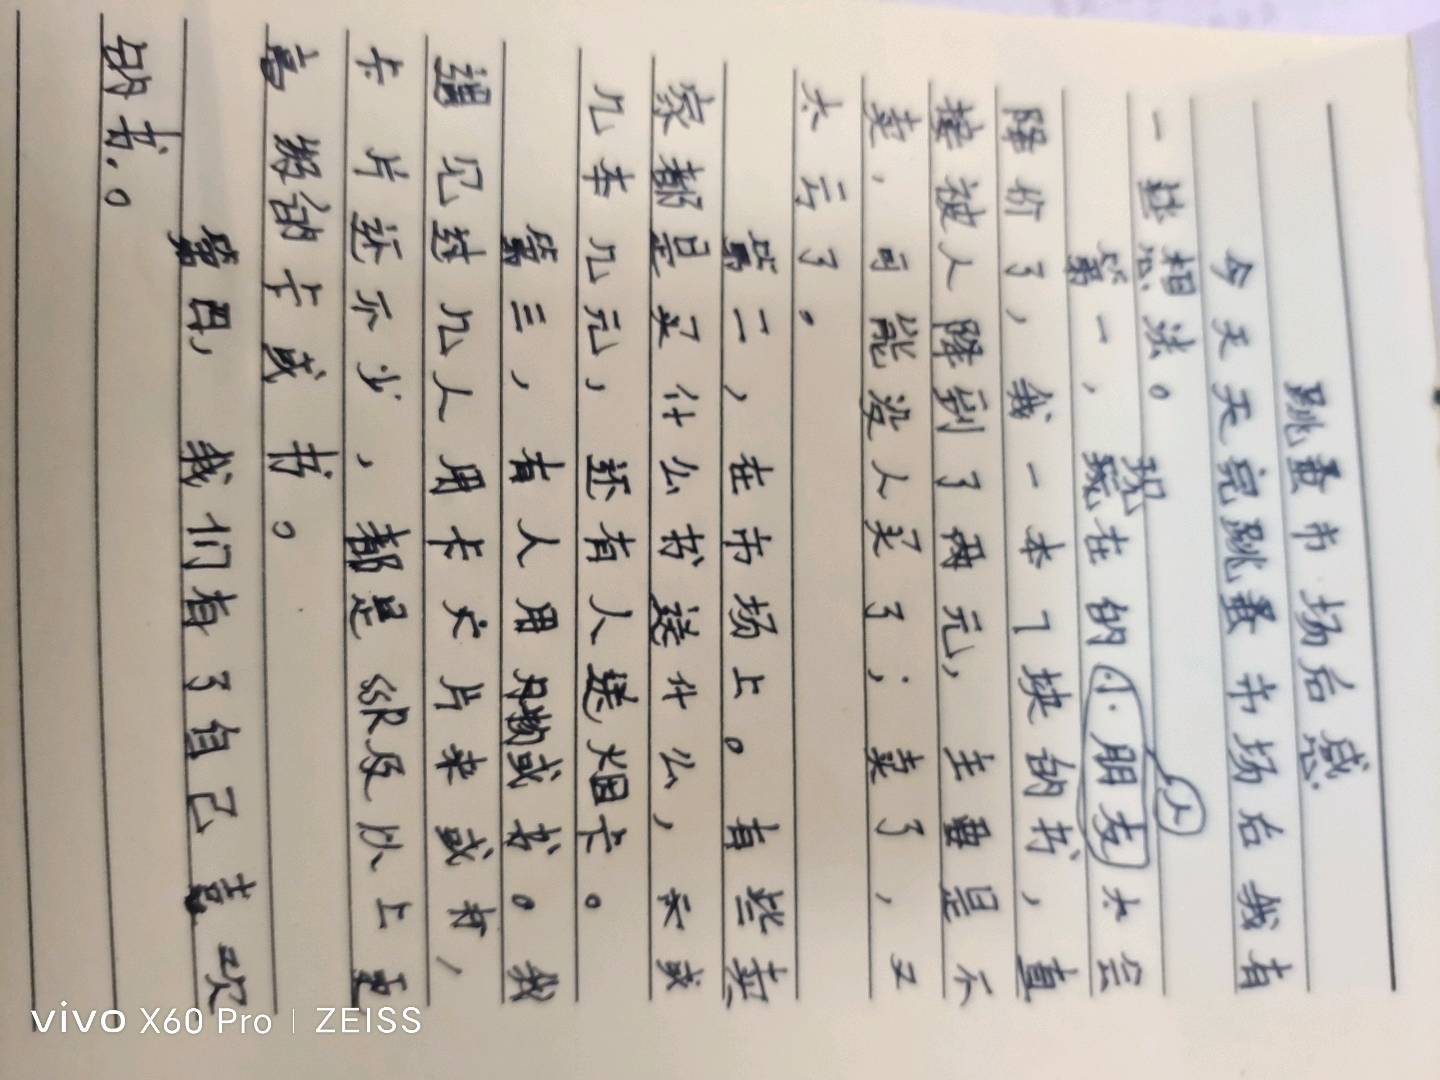 跳蚤市场后感
今天天完跳蚤市场后我有
一些想法。
第一，现在的小朋友太会
现
人
降价了，我一本7块的书，直
接被人降到了两元，主要是不
卖，可能没人买了；卖了，又
太亏了。
第二，在市场上。有些卖
家都是买什么书送什么，买或
几本几元，还有人送烟卡。
第三，有人用物或书。我
遇见过几人用卡片来或书，
卡片还不少，都是SSR及以上更
高级的卡或书。
第四，我们有了自己喜欢
的书。
vivo X60 Pro | ZEISS